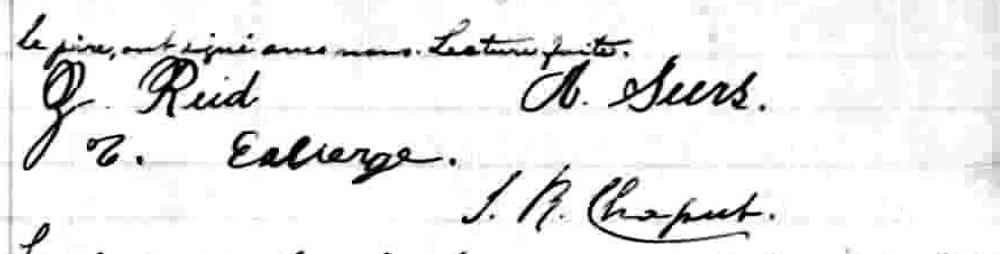 le père, ont signé avec nous. Lecture faite.
J. Reid A. Seers.
J. R. Chaput.